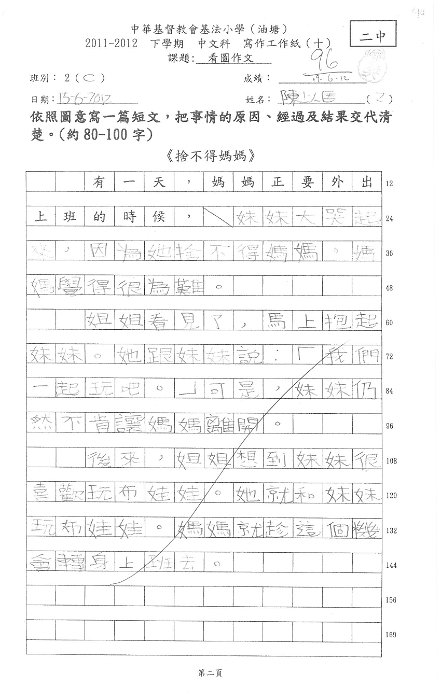 中華基督教會基法小學（油塘）
2011-2012 下學期 中文科 寫作工作紙（十）
二中
課題：看圖作文
96
班別：2（C） 成績：
15-6-12
日期：15-6-2012 姓名：陳（2）
依照圖意寫一篇短文，把事情的原因、經過及結果交代清
楚。（約80-100字）
《捨不得媽媽》
有一天，媽媽正要外出 12
上班的時候，妹妹大哭起 24
，因為她捨不得媽媽，媽 36
媽覺得很為難。 48
姐姐看見了，馬上抱起 60
妹妹。她跟妹妹說：「我們 72
一起玩吧。」可是，妹妹仍 84
然不肯讓媽媽離開。 96
後來，姐姐想到妹妹很 108
喜歡玩布娃娃。她就和妹妹 120
玩布娃娃。媽媽就趁這個機 132
會轉身上班去。 144
156
169
第二頁